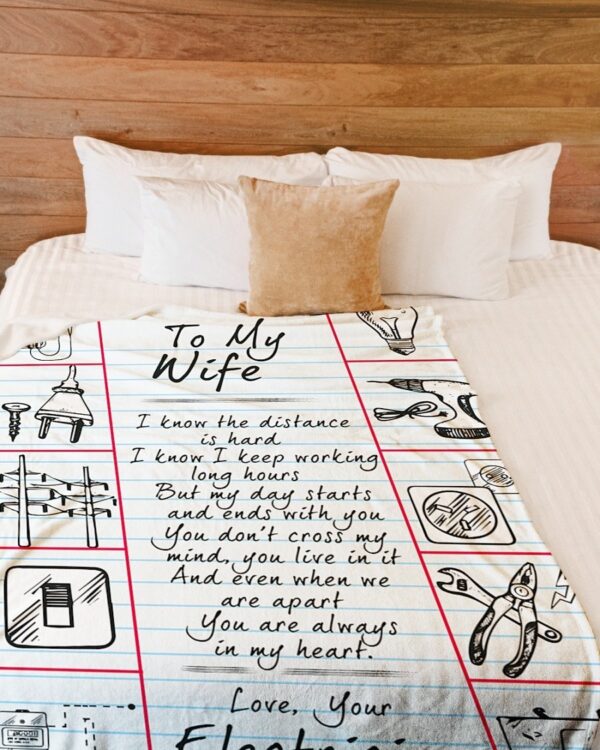 To My
Wife
I know the distance
is hard
I know I keep working
long hours
But my day starts
and ends with you
You don't cross my
mind, you live in it
And even when we
are apart
You are always
in my heart.
Love, Your